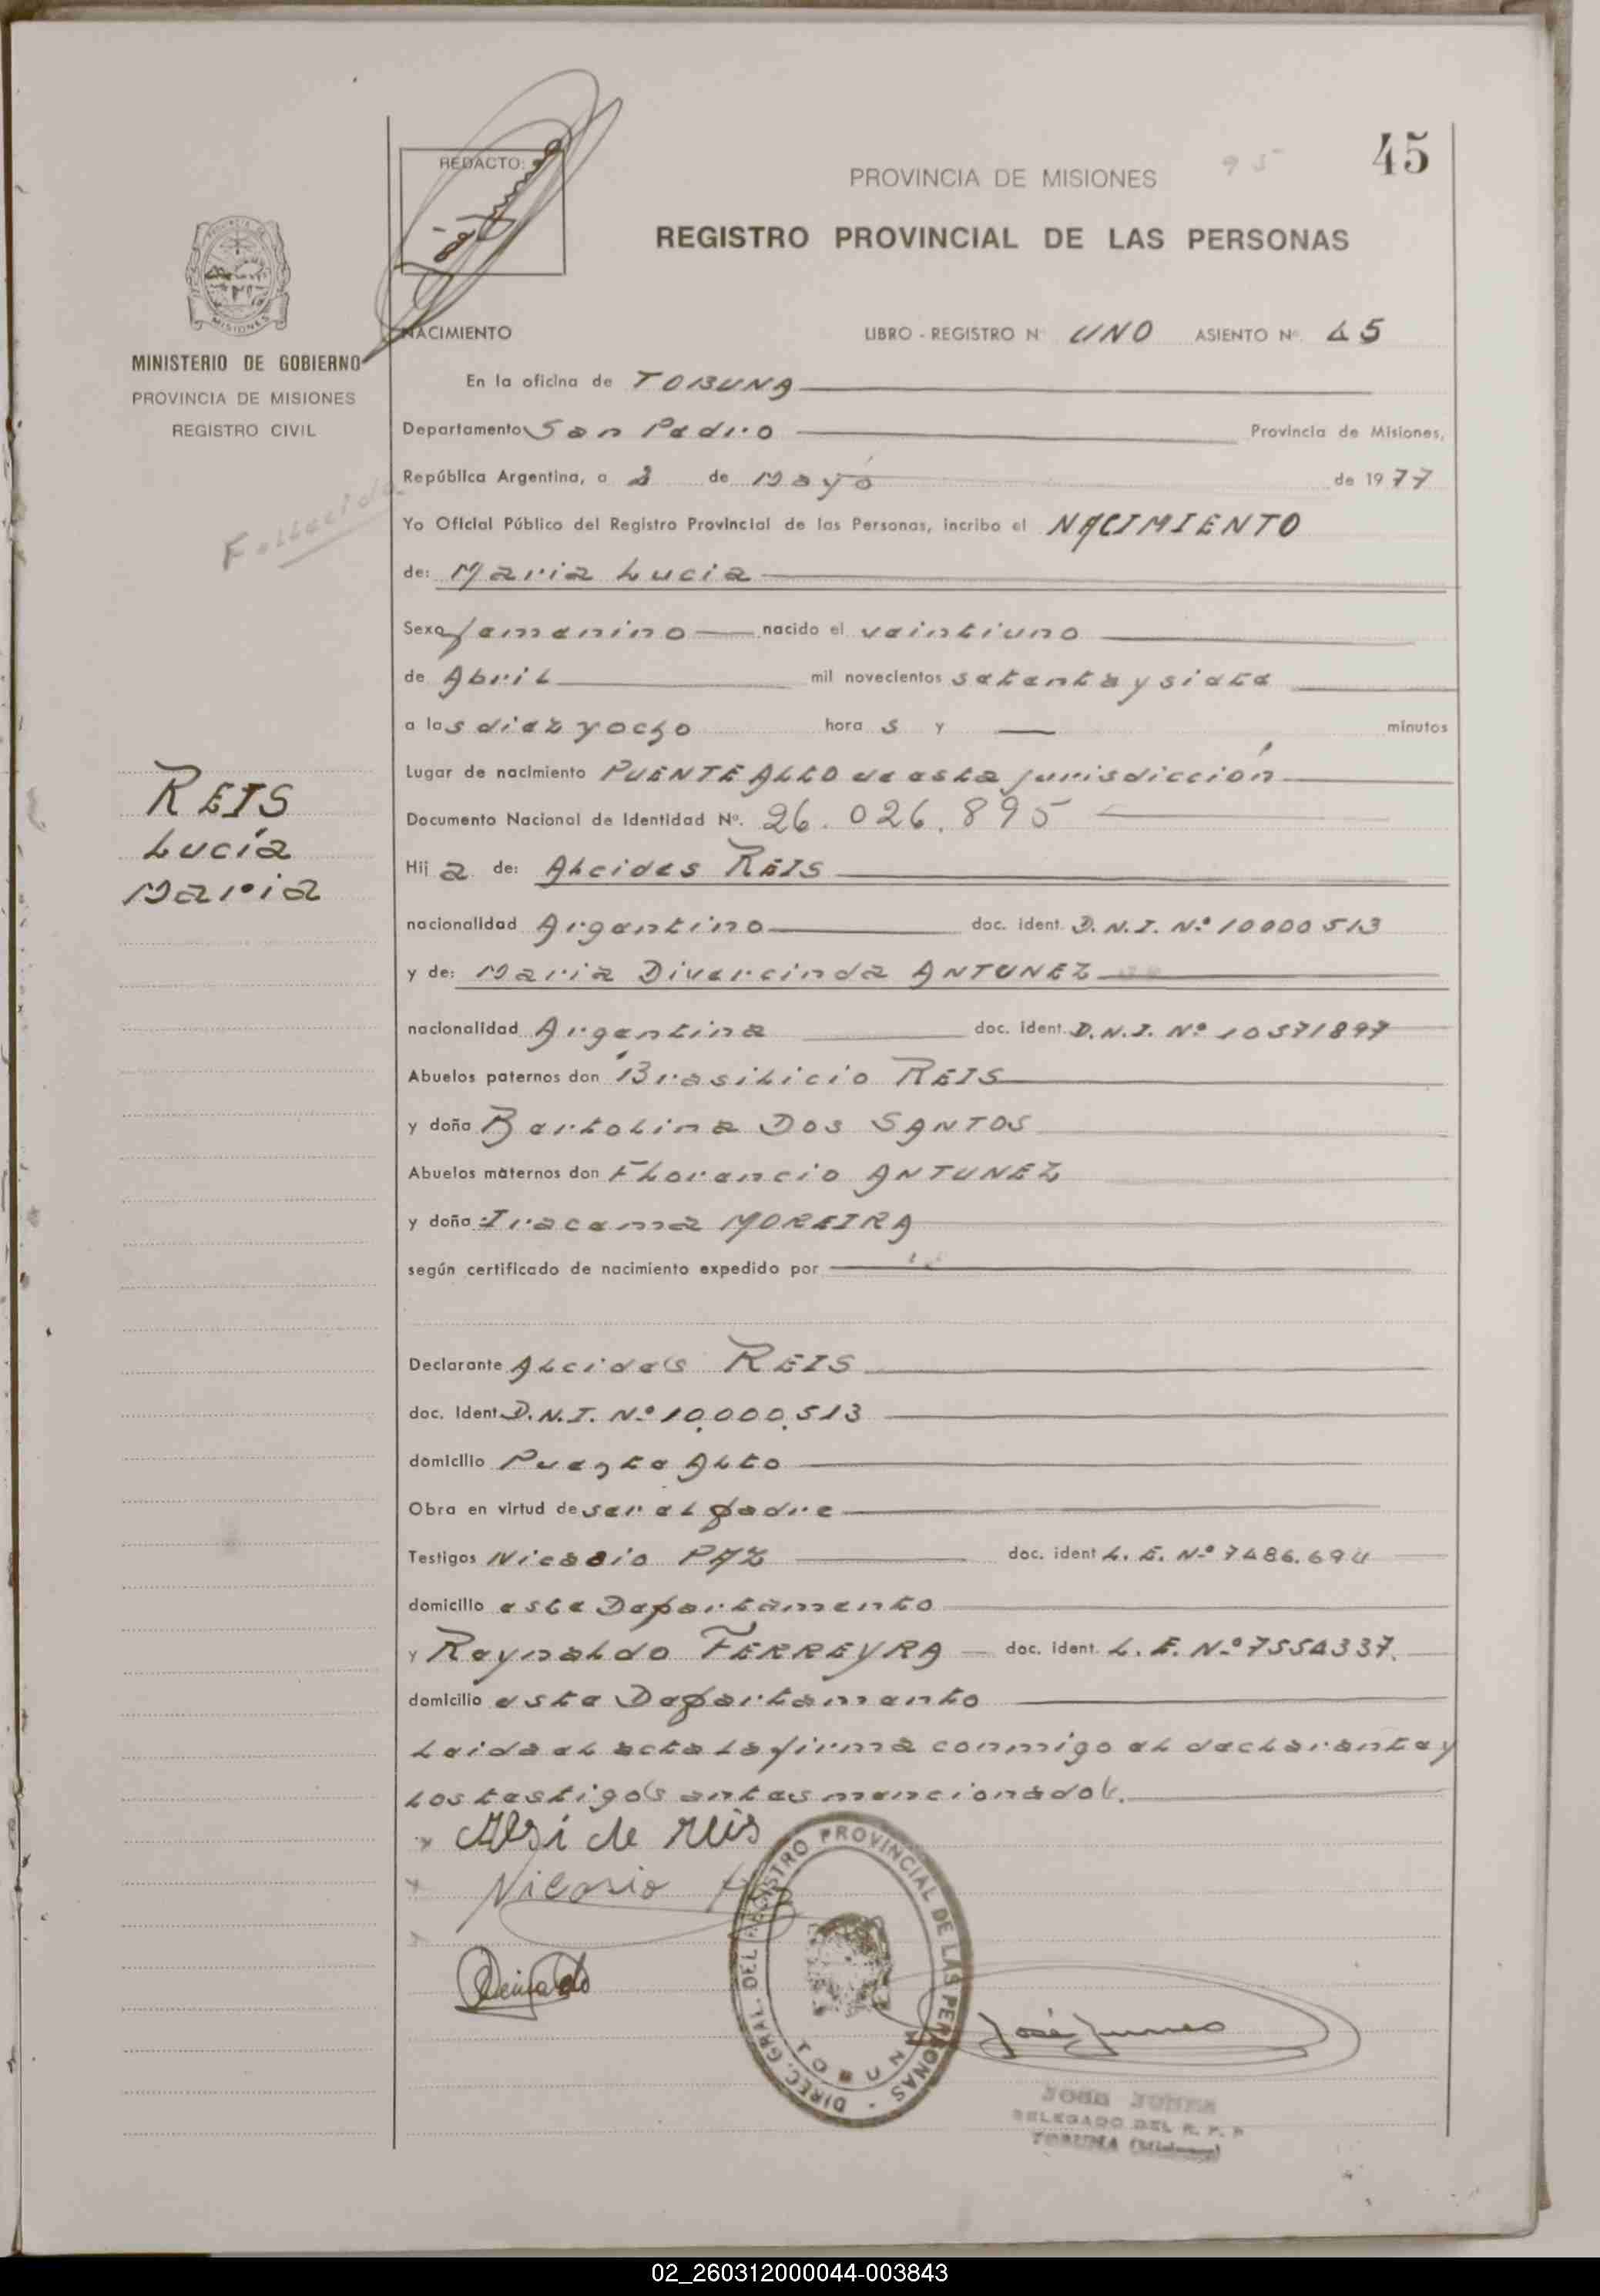 45
95
REDACTO:
PROVINCIA DE MISIONES
REGISTRO PROVINCIAL DE LAS PERSONAS
MINISTERIO DE GOBIERNO
PROVINCIA DE MISIONES
REGISTRO CIVIL
NACIMIENTO LIBRO - REGISTRO Nº UNO ASIENTO Nº. 45
En la oficina de TOBUNA
Departamento San Pedro Provincia de Misiones,
República Argentina, a 2 de Mayo de 1977
Fallecida
Yo Oficial Público del Registro Provincial de las Personas, incribo el NACIMIENTO
de: Maria Lucia
Sexo femenino nacido el veintiuno
de Abril mil novecientos setenta y siete
a las diez y ocho hora s y — minutos
Lugar de nacimiento PUENTE ALTO de esta jurisdicción
Documento Nacional de Identidad Nº. 26.026.895
REIS
Lucía
Maria
Hij a de: Alcides REIS
nacionalidad Argentino doc. ident. D.N.I. Nº 10000513
y de: Maria Divercinda ANTUNEZ
nacionalidad Argentina doc. ident. D.N.I. Nº 10571897
Abuelos paternos don Brasilicio REIS
y doña Bertolina DOS SANTOS
Abuelos maternos don Florencio ANTUNEZ
y doña: Iracema MOREIRA
según certificado de nacimiento expedido por
Declarante Alcides REIS
doc. Ident. D.N.I. Nº 10.000.513
domicilio Puente Alto
Obra en virtud de ser el padre
Testigos Nicasio PAZ doc. ident L.E. Nº 7486.694
domicilio este Departamento
y Reynaldo FERREYRA — doc. ident. L.E. Nº 7554337.
domicilio este Departamento
Leida el acta la firma conmigo el declarante y
los testigos antes mencionados.
Alsi de reis
Nicasio
Reinaldo
DIREC. GRAL. DEL REGISTRO PROVINCIAL DE LAS PERSONAS
TOBUNA
José Junes
JOSE JUNES
DELEGADO DEL R. P. P
TOBUNA (Misiones)
02_260312000044-003843